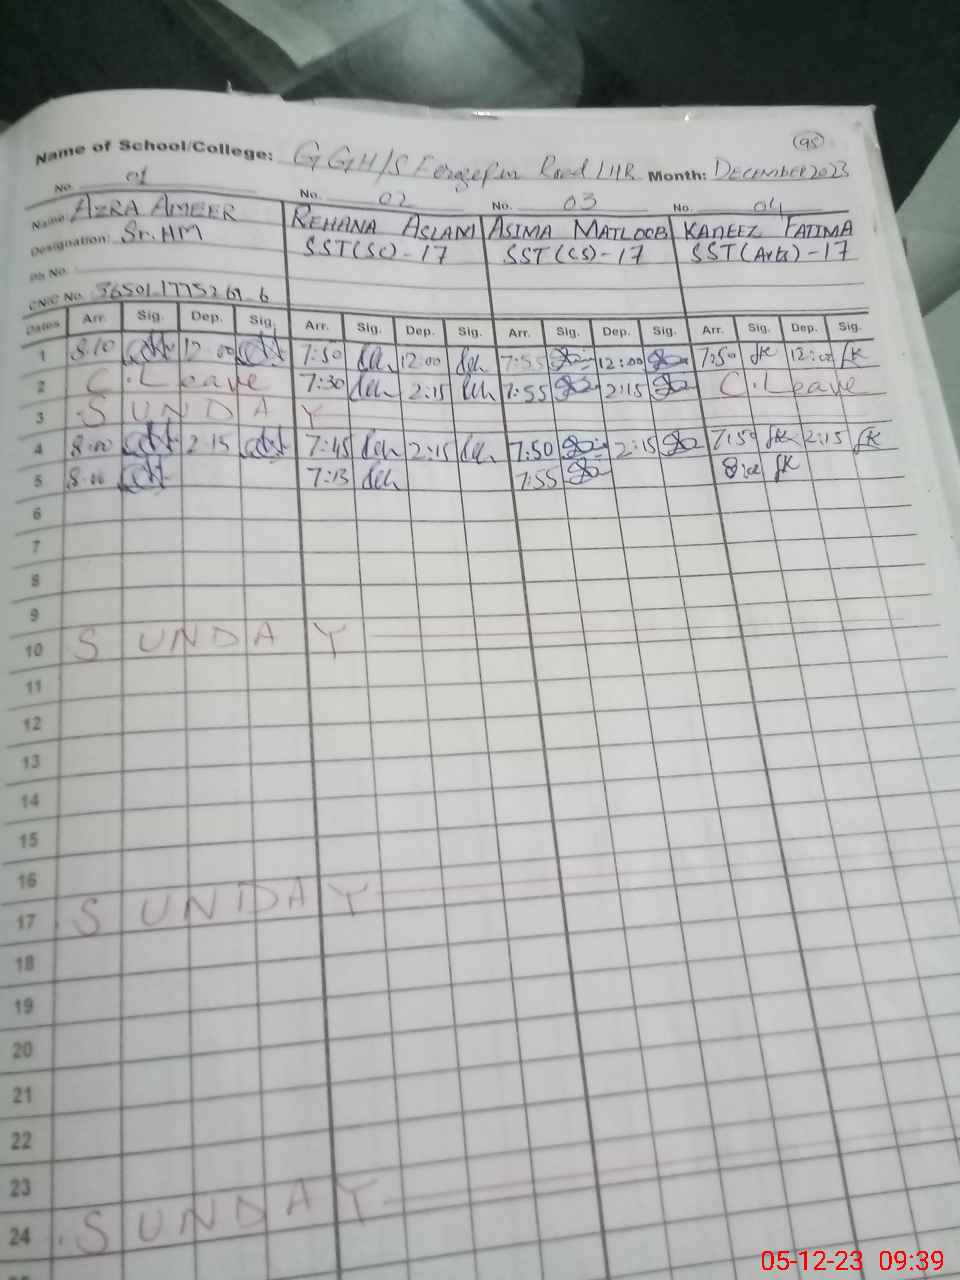 95
Name of School/College: GGH/S Ferozepur Road LHR Month: DECEMBER 2023
No. 01 No. 02 No. 03 No. 04
Name: AZRA AMEER REHANA ASLAM ASIMA MATLOOB KANEEZ FATIMA
Designation: Sr. HM SST(SC)-17 SST(CS)-17 SST(Arts)-17
Ph No.
CNIC No. 36501
Dates Arr. Sig. Dep. Sig. Arr. Sig. Dep. Sig. Arr. Sig. Dep. Sig. Arr. Sig. Dep. Sig.
1 8:10 12:00 7:50 12:00 7:55 12:00 7:50 12:00
2 C. Leave 7:30 2:15 7:55 2:15 C. Leave
3 SUNDAY
4 8:00 2:15 7:45 2:15 7:50 2:15 7:50 2:15
5 8:00 7:13 7:55 8:00
6
7
8
9
10 SUNDAY
11
12
13
14
15
16
17 SUNDAY
18
19
20
21
22
23
24 SUNDAY
05-12-23 09:39